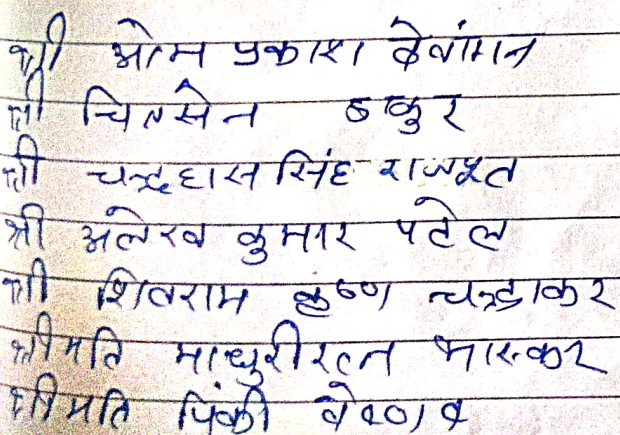 श्री ओम प्रकाश देवांगन
श्री चितसेन ठाकुर
श्री चन्द्रहास सिंह राजपूत
श्री अलेख कुमार पटेल
श्री शिवराम कृष्ण चन्द्राकर
श्रीमति माधुरी रत्न भास्कर
श्रीमति पिंकी वैष्णव